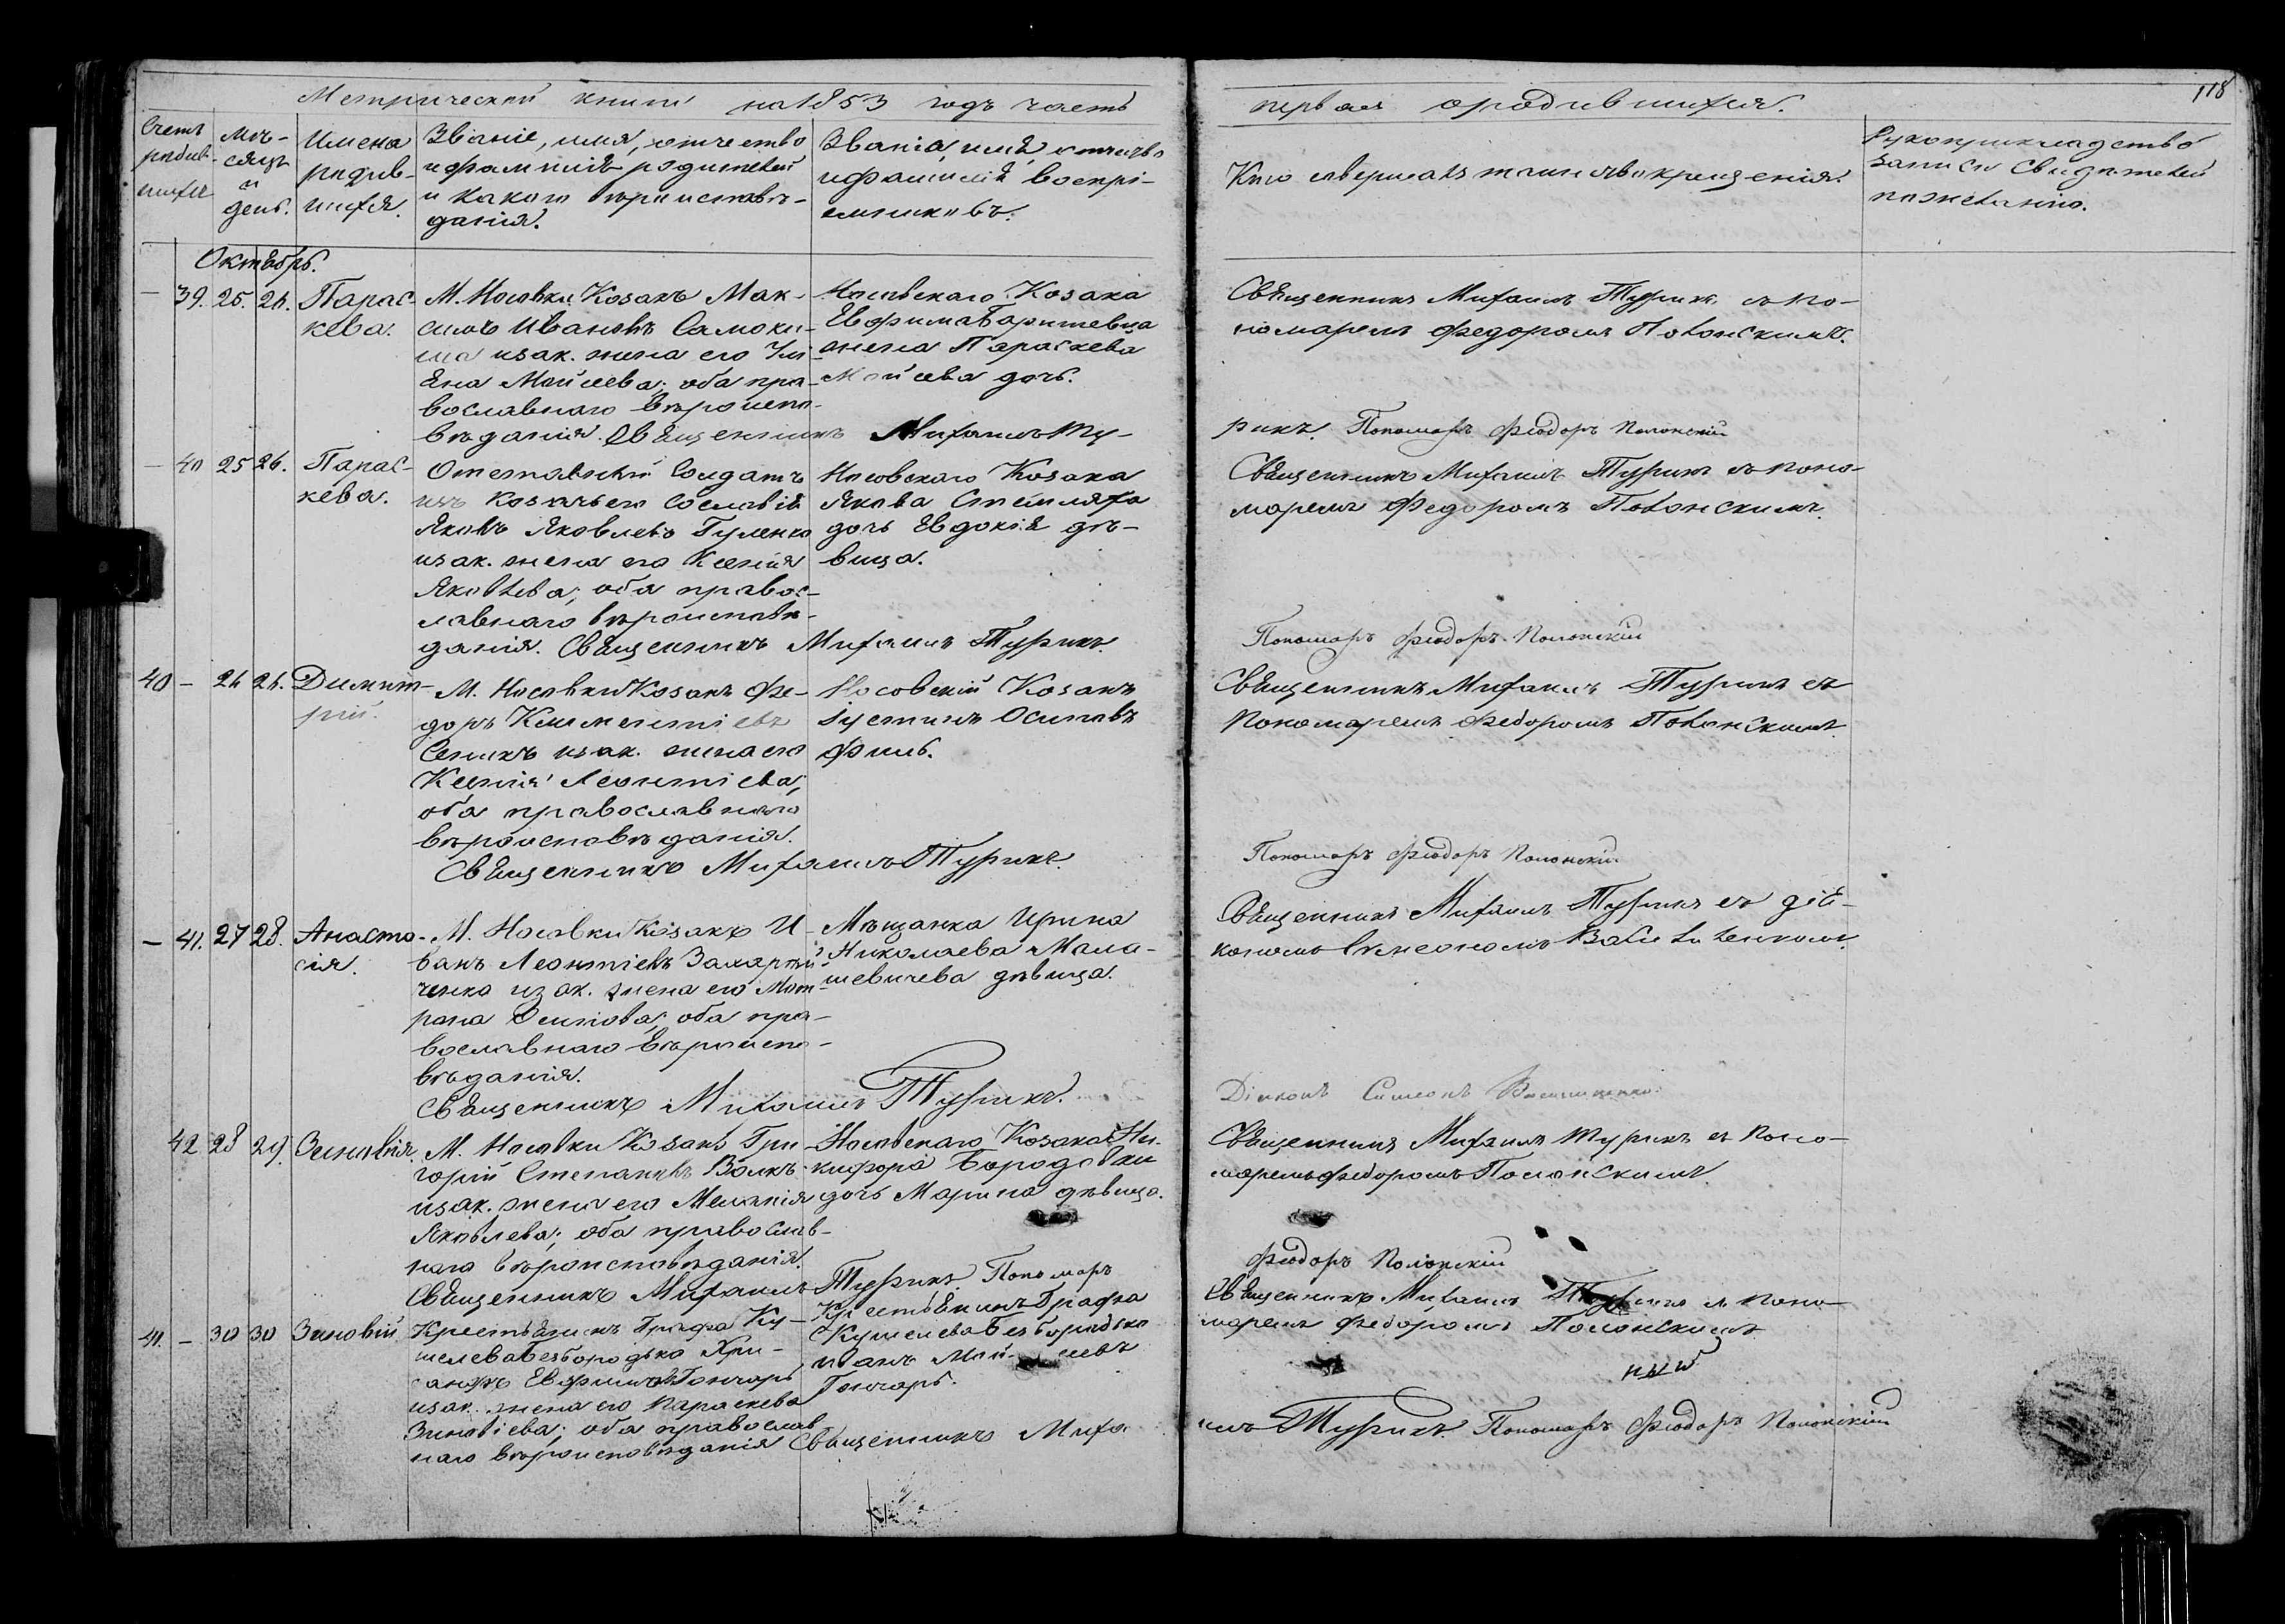 118
Метрической книги на 1853 годъ часть первая о родившихся.
Счетъ родив-шихся
Мѣ-сяцъ и день.
Имена родив-шихся.
Званіе, имя, отчество
и фамилія родителей
и какого вѣроисповѣ-
данія.
Званіе, имя, отчество
и фамилія воспрі-
емниковъ.
Кто совершалъ таинство крещенія.
Рукоприкладство
записи свидѣтелей
по желанію.
Октябрь.
— 39. 25. 26. Парас-
кева.
М. Носовки Козакъ Мак-
симъ Ивановъ Самоки-
ша изак. жена его Ули-
яна Мойсеева; оба пра-
вославнаго вѣроиспо-
вѣданія. Священникъ Михаилъ Ту-
Носовскаго Козака
Евфима
жена Параскева
Мойсеева дочь.
Священникъ Михаилъ Турикъ съ по-
номаремъ Федоромъ Полонскимъ.
рикъ. Пономарь Феодоръ Полонскій
— 40 25 26. Парас-
кева.
Отставный Солдатъ
изъ козачьего сословія
Яковъ Яковлевъ Гуленко
изак. жена его Ксенія
Яковлева; оба правос-
лавнаго вѣроисповѣ-
данія. Священникъ Михаилъ Турикъ.
Носовскаго Козака
Якова
дочь Евдокія дѣ-
вица.
Священникъ Михаилъ Турикъ съ поно-
маремъ Федоромъ Полонскимъ.
Пономарь Феодоръ Полонскій
40 — 26 26. Димит-
рій.
М. Носовки Козакъ Фе-
доръ Климентіевъ
Сеникъ изак. жена его
Ксенія Леонтіева;
оба православнаго
вѣроисповѣданія.
Священникъ Михаилъ Турикъ
Носовскій Козакъ
Іустинъ Осиповъ
Филь.
Священникъ Михаилъ Турикъ съ
Пономаремъ Федоромъ Полонскимъ
Пономарь Феодоръ Полонскій
— 41. 27 28. Анаста-
сія.
М. Носовки Козакъ И-
ванъ Леонтіевъ Захарій-
ченко изак. жена его Мот-
рона Осипова; оба пра-
вославнаго вѣроиспо-
вѣданія.
Священникъ Михаилъ Турикъ.
Мѣщанка Ирина
Николаева Мала-
шевичева дѣвица.
Священникъ Михаилъ Турикъ съ діа-
кономъ Симеономъ
Діаконъ Симеонъ
42 28 29. Зиновія.
М. Носовки Козакъ Гри-
горій Степановъ Волкъ
изак. жена его Меланія
Яковлева; оба православ-
наго вѣроисповѣданія.
Священникъ Михаилъ Турикъ Пономарь
Носовскаго Козака Ни-
кифора Бородавки
дочь Марина дѣвица.
Священникъ Михаилъ Турикъ съ Поно-
маремъ Федоромъ Полонскимъ.
Феодоръ Полонскій
41. — 30 30 Зиновій
Крестьянинъ Графа Ку-
шелева Безбородька Хри-
санфъ Евфимовъ Гончаръ
изак. жена его Параскева
Зиновіева; оба православ-
наго вѣроисповѣданія Священникъ Миха-
Крестьянинъ Графа
Кушелева Безбородька
Иванъ Мойсеевъ
Гончаръ.
Священникъ Михаилъ Турикъ съ Поно-
маремъ Федоромъ Полонскимъ
илъ Турикъ. Пономарь Феодоръ Полонскій